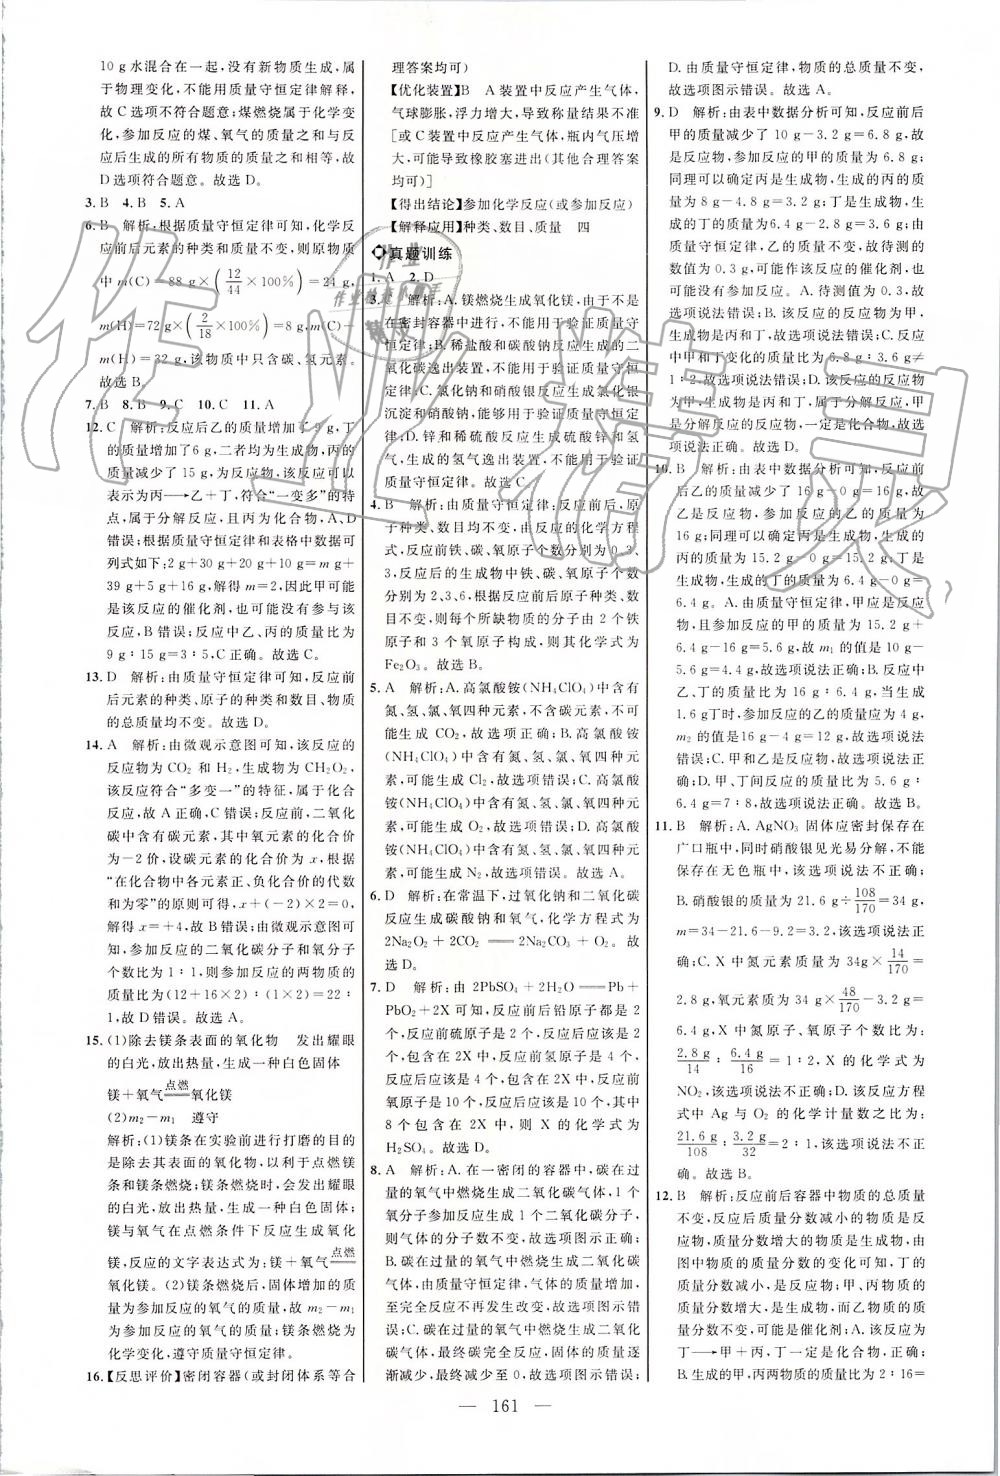 10 g水混合在一起,没有新物质生成,属
于物理变化,不能用质量守恒定律解释,
故C选项不符合题意;煤燃烧属于化学变
化,参加反应的煤、氧气的质量之和与反
应后生成的所有物质的质量之和相等,故
D选项符合题意。故选D。
3. B 4. B 5. A
6. B 解析:根据质量守恒定律可知,化学反
应前后元素的种类和质量不变,则原物质
中m(C)=88 g×(12/44×100%)=24 g,
m(H)=72 g×(2/18×100%)=8 g,m(C)+
m(H)=32 g,该物质中只含碳、氢元素。
故选B。
7. B 8. B 9. C 10. C 11. A
12. C 解析:反应后乙的质量增加了9 g,丁
的质量增加了6 g,二者均为生成物,丙的
质量减少了15 g,为反应物,该反应可以
表示为丙—→乙+丁,符合“一变多”的特
点,属于分解反应,且丙为化合物,A、D
错误;根据质量守恒定律和表格中数据可
列式如下:2 g+30 g+20 g+10 g=m g+
39 g+5 g+16 g,解得m=2,因此甲可能
是该反应的催化剂,也可能没有参与该
反应,B错误;反应中乙、丙的质量比为
9 g∶15 g=3∶5,C正确。故选C。
13. D 解析:由质量守恒定律可知,反应前
后元素的种类、原子的种类和数目、物质
的总质量均不变。故选D。
14. A 解析:由微观示意图可知,该反应的
反应物为CO₂ 和 H₂,生成物为CH₂O₂,
该反应符合“多变一”的特征,属于化合
反应,故A正确,C错误;反应前,二氧化
碳中含有碳元素,其中氧元素的化合价
为−2价,设碳元素的化合价为x,根据
“在化合物中各元素正、负化合价的代数
和为零”的原则可得,x+(−2)×2=0,
解得x=+4,故B错误;由微观示意图可
知,参加反应的二氧化碳分子和氧气分
子数目比为1∶1,则参加反应的两物质的
质量比为(12+16×2)∶(1×2)=22∶
1,故D错误。故选A。
15. (1)除去镁条表面的氧化物 发出耀眼
的白光,放出热量,生成一种白色固体
镁+氧气 点燃 氧化镁
(2)m₂−m₁ 遵守
解析:(1)镁条在实验前进行打磨的目的
是除去其表面的氧化物,以利于点燃镁
条和镁条燃烧;镁条燃烧时,会发出耀眼
的白光,放出热量,生成一种白色固体;
镁与氧气在点燃条件下反应生成氧化
镁,反应的文字表达式为:镁+氧气 点燃
氧化镁。(2)镁条燃烧后,固体增加的质
量为参加反应的氧气的质量,故m₂−m₁
为参加反应的氧气的质量;镁条燃烧为
化学变化,遵守质量守恒定律。
16.【反思评价】密闭容器(或封闭体系等合
理答案均可)
【优化装置】B A装置中反应产生气体,
气球膨胀,浮力增大,导致称量结果不准
[或C装置中反应产生气体,瓶内气压增
大,可能导致橡胶塞迸出(其他合理答案
均可)]
【得出结论】参加化学反应(或参加反应)
【解释应用】种类、数目、质量 四
真题训练
1. A 2. D
3. 解析:A.镁燃烧生成氧化镁,由于不是
在密封容器中进行,不能用于验证质量守
恒定律;B.稀盐酸和碳酸钠反应生成的二
氧化碳逸出装置,不能用于验证质量守恒
定律;C.氯化钠和硝酸银反应生成氯化银
沉淀和硝酸钠,能够用于验证质量守恒定
律;D.锌和稀硫酸反应生成硫酸锌和氢
气,生成的氢气逸出装置,不能用于验证
质量守恒定律。故选C。
4. B 解析:由质量守恒定律:反应前后,原
子种类、数目均不变,由反应的化学方程
式,反应前铁、碳、氧原子个数分别为0、3、
3,反应后的生成物中铁、碳、氧原子个数
分别为2、3、6,根据反应前后原子种类、数
目不变,则每个所缺物质的分子由2个铁
原子和3个氧原子构成,则其化学式为
Fe₂O₃。故选B。
5. A 解析:A.高氯酸铵(NH₄ClO₄)中含有
氮、氢、氯、氧四种元素,不含碳元素,不可
能生成CO₂,故选项正确;B.高氯酸铵
(NH₄ClO₄)中含有氮、氢、氯、氧四种元
素,可能生成Cl₂,故选项错误;C.高氯酸
铵(NH₄ClO₄)中含有氮、氢、氯、氧四种元
素,可能生成O₂,故选项错误;D.高氯酸
铵(NH₄ClO₄)中含有氮、氢、氯、氧四种元
素,可能生成N₂,故选项错误。故选A。
6. D 解析:在常温下,过氧化钠和二氧化碳
反应生成碳酸钠和氧气,化学方程式为
2Na₂O₂+2CO₂══2Na₂CO₃+O₂。故
选D。
7. D 解析:由2PbSO₄+2H₂O══Pb+
PbO₂+2X可知,反应前后铅原子都是2
个,反应前硫原子是2个,反应后应该是2
个,包含在2X中,反应前氢原子是4个,反
应后应该是4个,包含在2X中,反应前
氧原子是10个,反应后应该是10个,其中
8个包含在2X中,则X的化学式为
H₂SO₄。故选D。
8. A 解析:A.在一密闭的容器中,碳在过
量的氧气中燃烧生成二氧化碳气体,1个
氧分子参加反应生成1个二氧化碳分子,
则气体的分子个数不变,故选项图示正确;
B.碳在过量的氧气中燃烧生成二氧化碳
气体,由质量守恒定律,气体的质量增加,
至完全反应不再发生改变,故选项图示错
误;C.碳在过量的氧气中燃烧生成二氧化
碳气体,最终碳完全反应,固体的质量逐
渐减少,最终变为0,故选项图示错误;
D.由质量守恒定律,物质的总质量不变,
故选项图示错误。故选A。
9. D 解析:由表中数据分析可知,反应前后
甲的质量减少了10 g−3.2 g=6.8 g,故
是反应物,参加反应的甲的质量为6.8 g;
同理可以确定丙是生成物,生成的丙的质
量为8 g−4.8 g=3.2 g;丁是生成物,生
成的丁的质量为6.4 g−2.8 g=3.6 g;由
质量守恒定律,待测的质量不变,待测的
数值为0.3 g,可能作该反应的催化剂,也
可能没有参加反应。A.待测值为0.3,故
选项说法错误;B.由上述分析,反应物为
甲,生成物是丙和丁,故选项说法错误;C.反应
中甲和丁变化的质量比为6.8 g∶3.6 g≠
1∶2,故选项说法错误;D.该反应的反应物
为甲,生成物是丙和丁,属于分解反应,甲
是分解反应的反应物,一定是化合物,故选
项说法正确。故选D。
10. B 解析:由表中数据分析可知,反应前
后乙的质量减少了16 g−0 g=16 g,故
乙是反应物,参加反应的乙的质量为
16 g;同理可以确定丙是生成物,生成的
丙的质量为15.2 g−0 g=15.2 g;丁是
生成物,生成的丁的质量为6.4 g−0 g=
6.4 g。A.由质量守恒定律,甲应是反应物,
且参加反应的甲的质量为15.2 g+
6.4 g−16 g=5.6 g,故m₁的值是10 g−
5.6 g=4.4 g,故选项说法正确;B.反应中
乙、丁的质量比为16 g∶6.4 g,当生成
1.6 g丁时,参加反应的乙的质量为4 g,
m₂的值是16−4=12,故选项说法不正
确;C.甲和乙是反应物,故选项说法正
确;D.甲、丁间反应的质量比是为5.6 g∶
6.4 g=7∶8,故选项说法正确。故选B。
11. B 解析:A.AgNO₃固体应密封保存在
广口瓶中,同时硝酸银见光易分解,不能
保存在无色瓶中,该选项说法不正确;
B.硝酸银的质量为21.6 g÷108/170=34 g,
m=34−21.6−9.2=3.2,该选项说法
正确;C.X中氮元素质量为34 g×14/170=
2.8 g,氧元素质量为34 g×48/170−3.2 g=
6.4 g,X中氮原子、氧原子个数比为:
2.8 g/14∶6.4 g/16=1∶2,X的化学式为
NO₂,该选项说法不正确;D.该反应方程
式中Ag与O₂的化学计量数之比为:
21.6 g/108∶3.2 g/32=2∶1,该选项说法不正
确。故选B。
12. B 解析:反应前后容器中物质的总质量
不变,反应后质量分数减小的物质是反应
物,质量分数增大的物质是生成物,由
图中物质的质量分数的变化可知,丁的
质量分数减小,是反应物;甲、丙物质的质
量分数增大,是生成物,而乙物质的质量
分数不变,可能是催化剂;A.该反应为
丁—→甲+丙,丁一定是化合物,正确;
B.反应中甲、丙的质量比是2∶16=
— 161 —